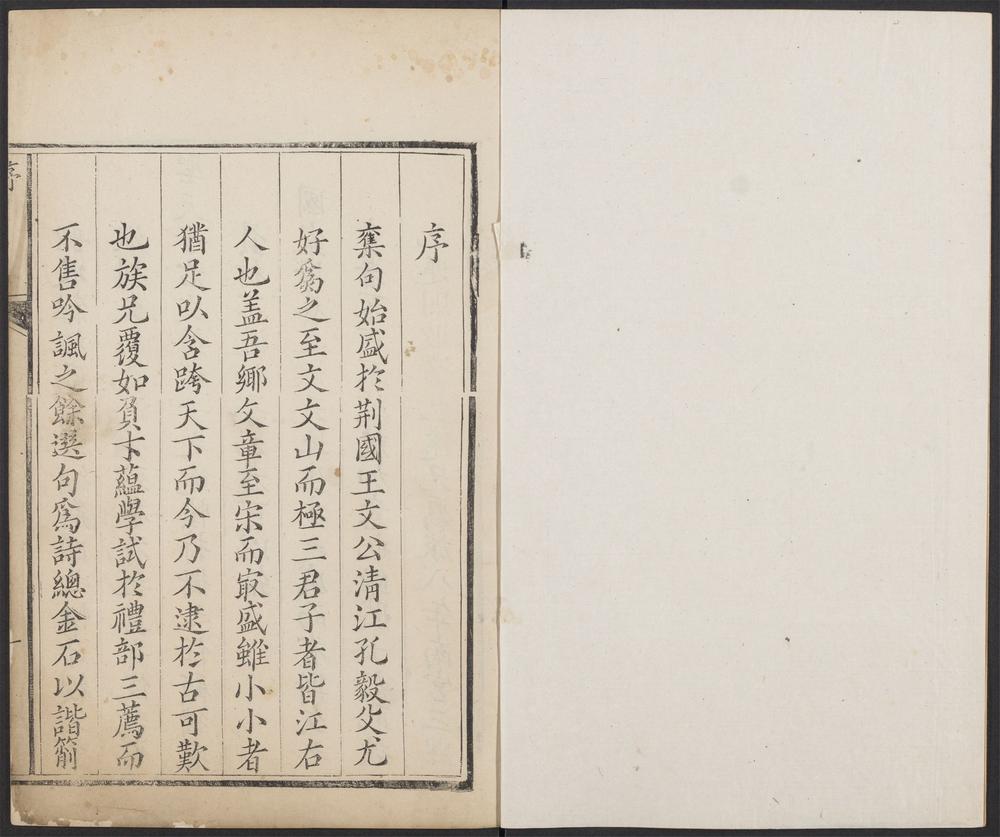 序
集句始盛於荆國王文公清江孔毅父尤
好爲之至文文山而極三君子者皆江右
人也盖吾鄉文章至宋而冣盛雖小小者
猶足以含跨天下而今乃不逮於古可歎
也族兄覆如負卞藴學試於禮部三薦而
不售吟諷之餘選句爲詩總金石以諧箾
序
一